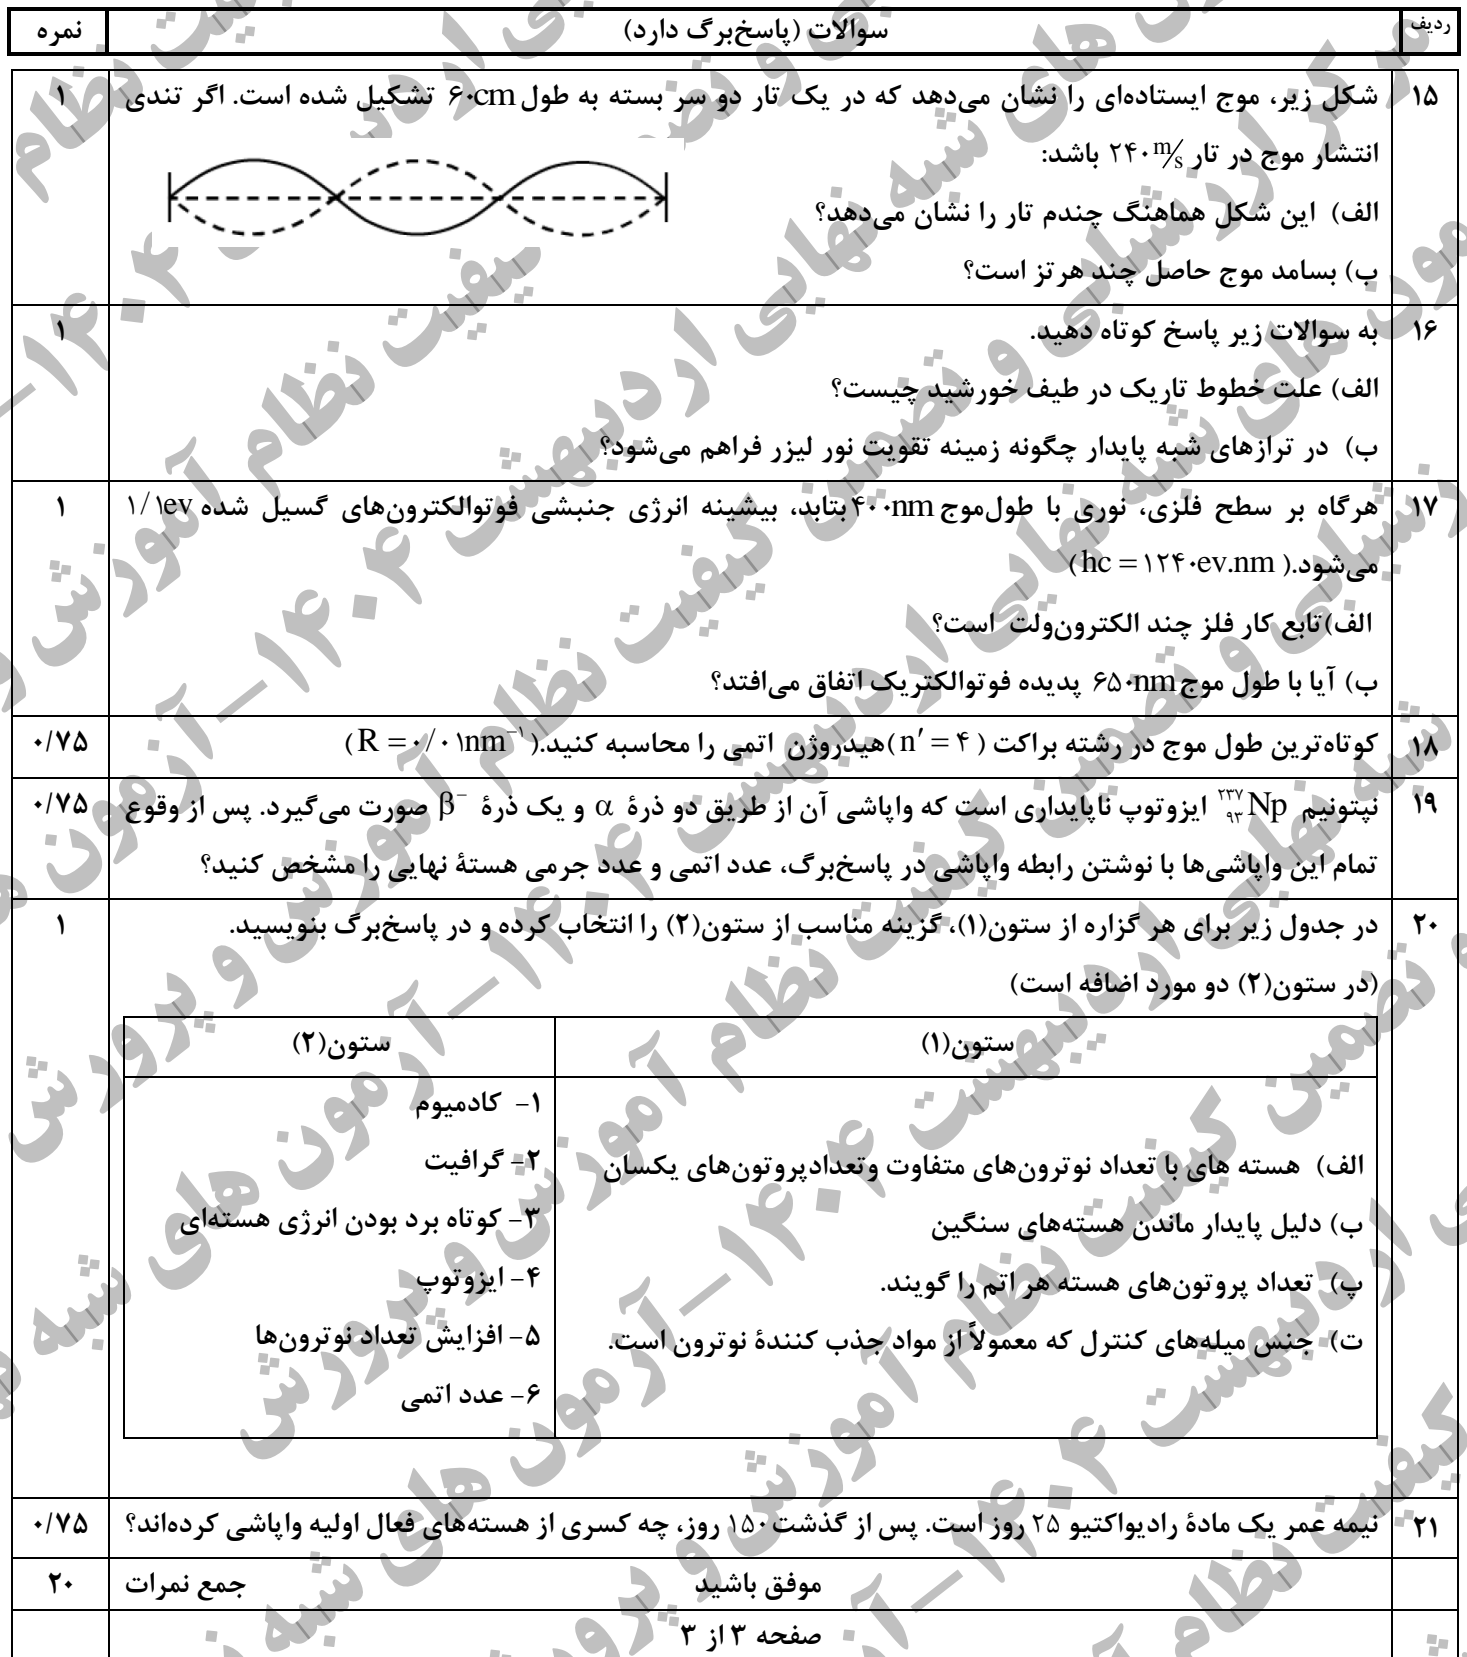 ردیف سوالات (پاسخ‌برگ دارد) نمره
۱۵ شکل زیر، موج ایستاده‌ای را نشان می‌دهد که در یک تار دو سر بسته به طول ۶۰cm تشکیل شده است. اگر تندی ۱
انتشار موج در تار ۲۴۰ m/s باشد:
الف) این شکل هماهنگ چندم تار را نشان می‌دهد؟
ب) بسامد موج حاصل چند هرتز است؟
۱۶ به سوالات زیر پاسخ کوتاه دهید. ۱
الف) علت خطوط تاریک در طیف خورشید چیست؟
ب) در ترازهای شبه پایدار چگونه زمینه تقویت نور لیزر فراهم می‌شود؟
۱۷ هرگاه بر سطح فلزی، نوری با طول‌موج ۴۰۰nm بتابد، بیشینه انرژی جنبشی فوتوالکترون‌های گسیل شده ۱/۱ev ۱
می‌شود.( hc = ۱۲۴۰ev.nm)
الف)تابع کار فلز چند الکترون‌ولت است؟
ب) آیا با طول موج ۶۵۰nm پدیده فوتوالکتریک اتفاق می‌افتد؟
۱۸ کوتاه‌ترین طول موج در رشته براکت ( n′ = ۴ )هیدروژن اتمی را محاسبه کنید.( R = ۰/۰۱nm⁻¹) ۰/۷۵
۱۹ نپتونیم ²³⁷₉₃Np ایزوتوپ ناپایداری است که واپاشی آن از طریق دو ذرهٔ α و یک ذرهٔ β⁻ صورت می‌گیرد. پس از وقوع ۰/۷۵
تمام این واپاشی‌ها با نوشتن رابطه واپاشی در پاسخ‌برگ، عدد اتمی و عدد جرمی هستهٔ نهایی را مشخص کنید؟
۲۰ در جدول زیر برای هر گزاره از ستون(۱)، گزینه مناسب از ستون(۲) را انتخاب کرده و در پاسخ‌برگ بنویسید. ۱
(در ستون(۲) دو مورد اضافه است)
ستون(۱) ستون(۲)
الف) هسته های با تعداد نوترون‌های متفاوت وتعدادپروتون‌های یکسان
ب) دلیل پایدار ماندن هسته‌های سنگین
پ) تعداد پروتون‌های هسته هر اتم را گویند.
ت) جنس میله‌های کنترل که معمولاً از مواد جذب کنندهٔ نوترون است.
۱- کادمیوم
۲- گرافیت
۳- کوتاه برد بودن انرژی هسته‌ای
۴- ایزوتوپ
۵- افزایش تعداد نوترون‌ها
۶- عدد اتمی
۲۱ نیمه عمر یک مادهٔ رادیواکتیو ۲۵ روز است. پس از گذشت ۱۵۰ روز، چه کسری از هسته‌های فعال اولیه واپاشی کرده‌اند؟ ۰/۷۵
موفق باشید جمع نمرات ۲۰
صفحه ۳ از ۳